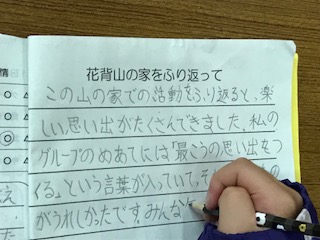 花背山の家をふり返って
この山の家での活動をふり返ると、楽
しい思い出がたくさんできました。私の
グループのめあてには「最こうの思い出をつ
くる」という言葉が入っていて、そ
がうれしかったです。みんな
情